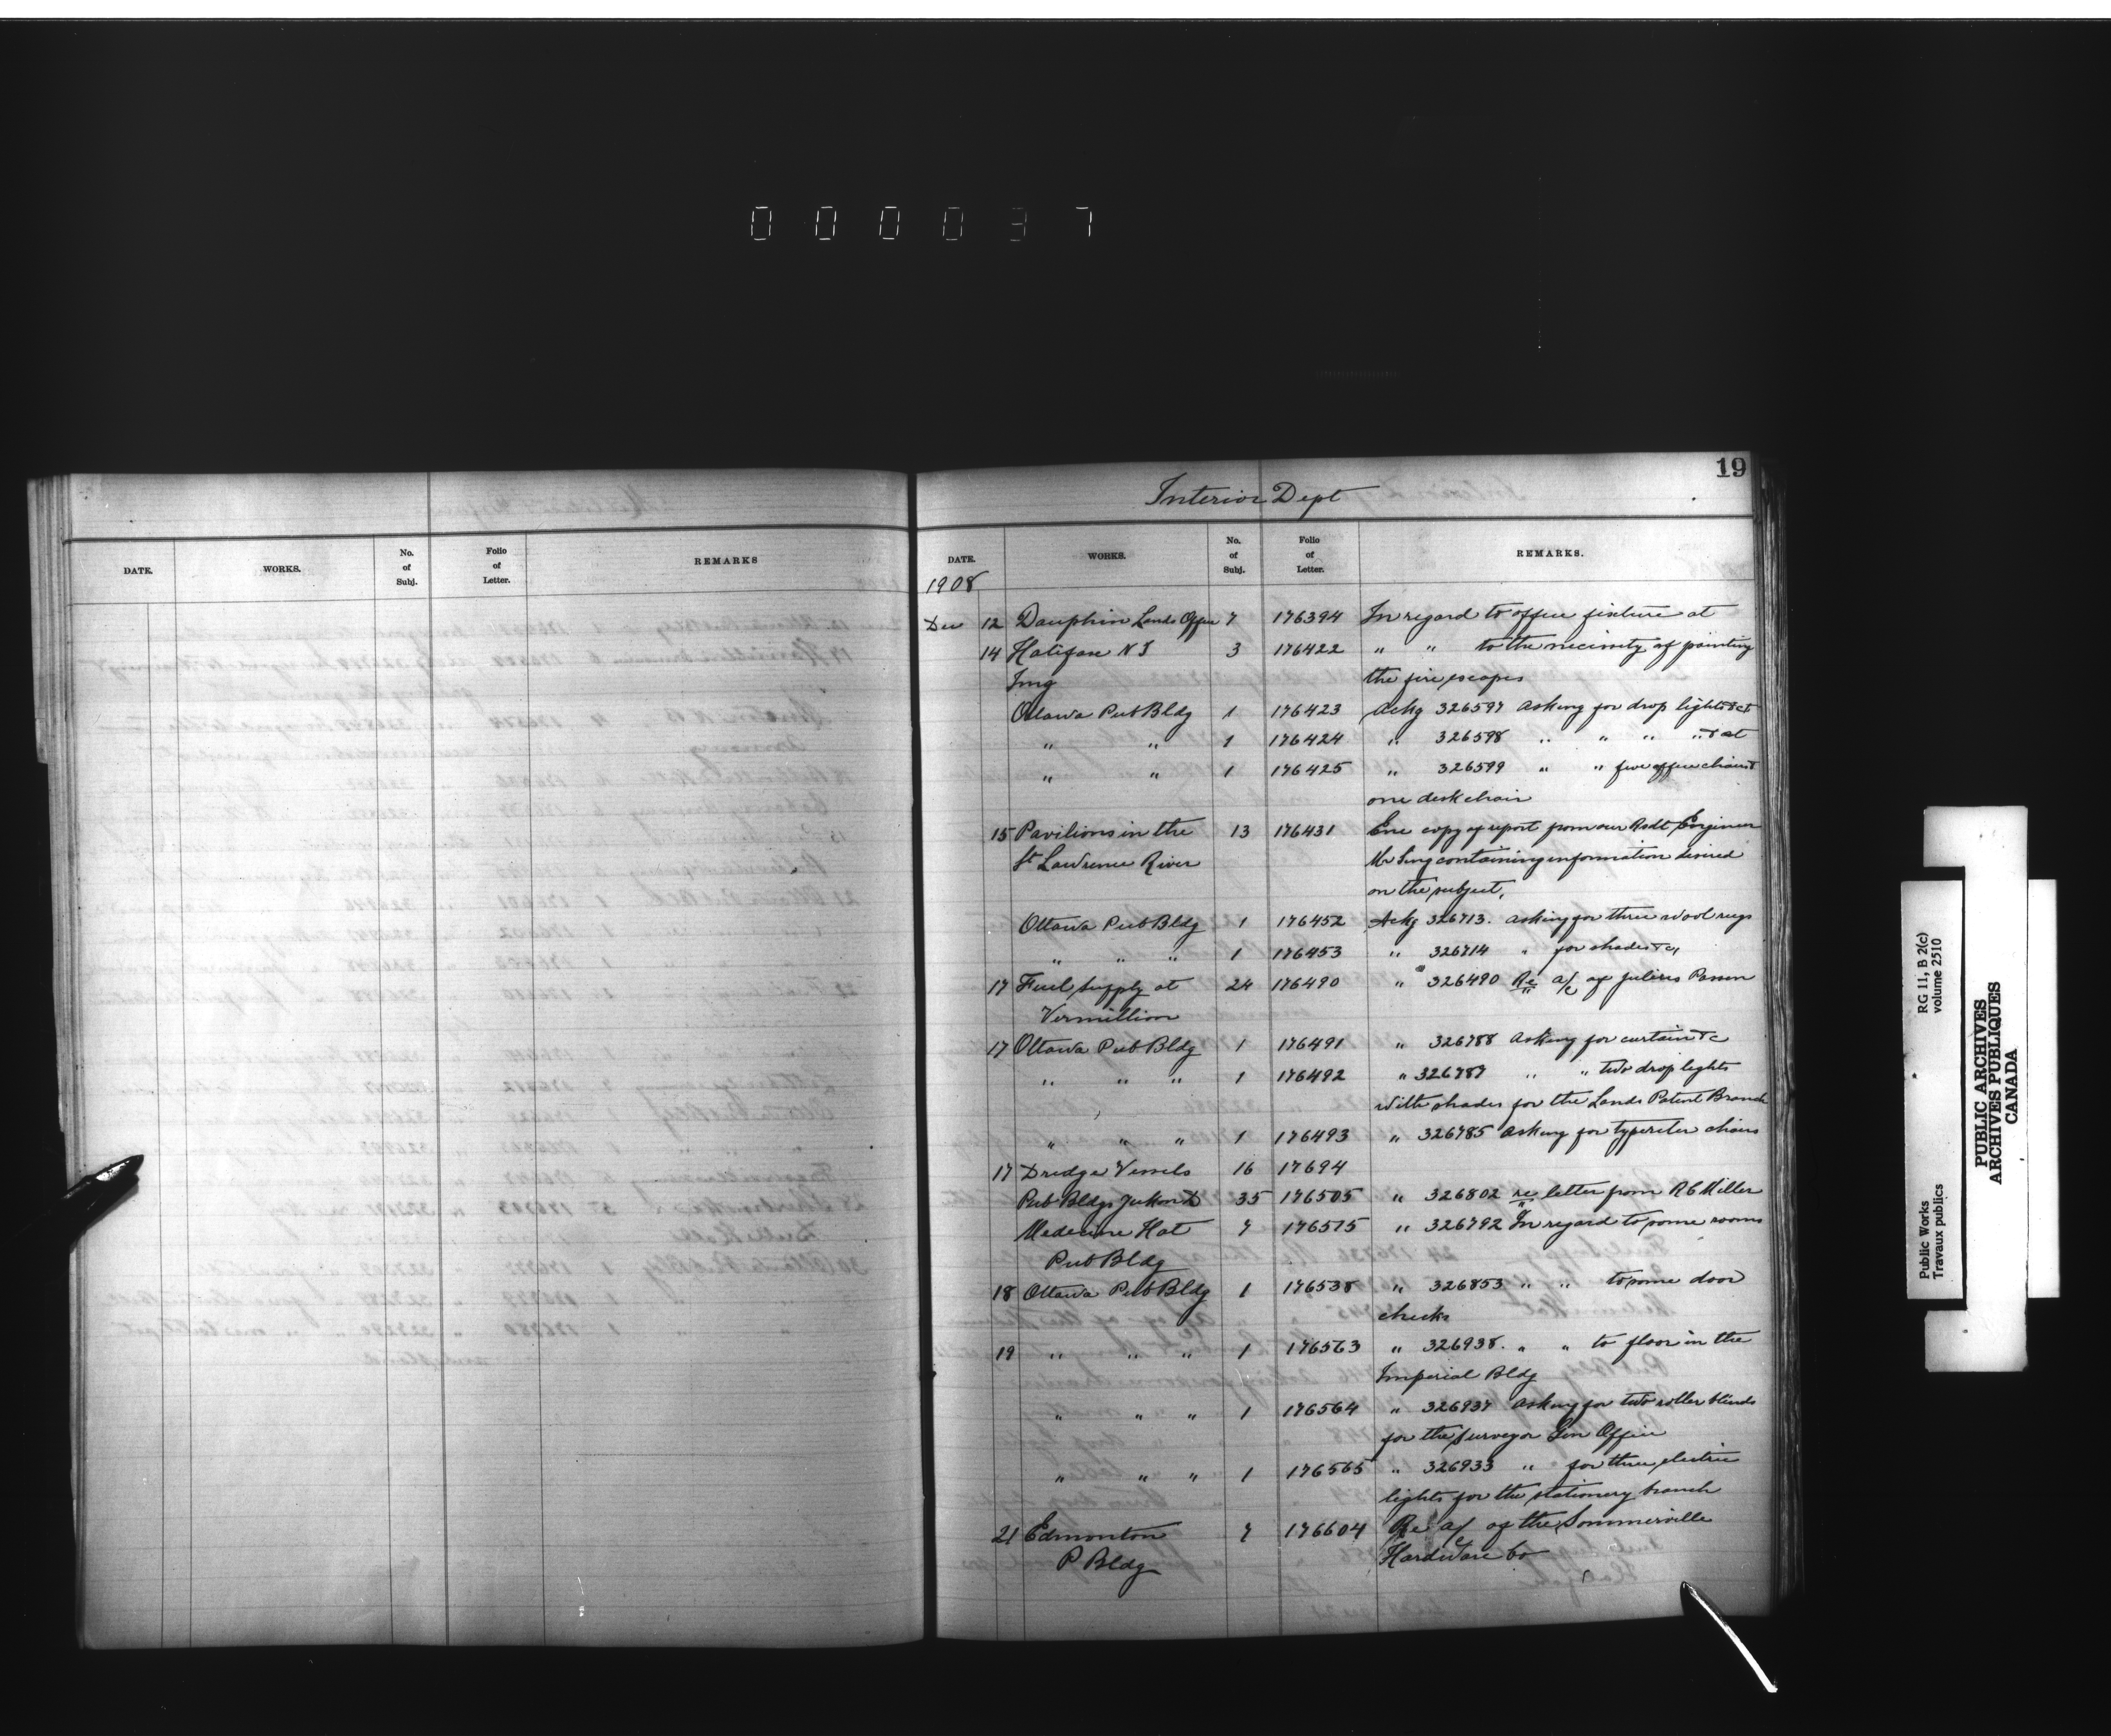 000037
19
Interior Dept
DATE. WORKS. No. of Subj. Folio of Letter. REMARKS
DATE. WORKS. No. of Subj. Folio of Letter. REMARKS.
1908
Dec 12 Dauphin Lands Office 7 176394 In regard to office fixture at
14 Halifax N S 3 176422 " " to the necissity of painting
Img the fire escapes
Ottawa Pub Bldg 1 176423 Ackg 326597 Asking for drop lights &ct
" " 1 176424 " 326598 " " " " &ct
" " 1 176425 " 326599 " " five office chairs &
one desk chair
15 Pavilions in the 13 176431 Enc copy of report from our Rsdt Engineer
St Lawrence River Mr Sing containing information desired
on the subject,
Ottawa Pub Bldg 1 176452 Ackg 326713. Asking for three wool rugs
" " " 1 176453 " 326714 " for shades &c,
17 Fuel supply at 24 176490 " 326490 Re a/c of Julius
Vermillion
17 Ottawa Pub Bldg 1 176491 " 326788 Asking for curtain &c
" " " 1 176492 " 326787 " " two drop lights
with shades for the Lands Patent Branch
" " " 1 176493 " 326785 Asking for typereter chairs
17 Dredge Vessels 16 17694
Pub Bldgs Yukon 35 176505 " 326802 re letter from R C Miller
Medecine Hat 7 176515 " 326792 In regard to some rooms
Pub Bldg
18 Ottawa Pub Bldg 1 176538 " 326853 " " to some door
checks
19 " " " 1 176563 " 326938. " " to floor in the
Imperial Bldg
" " " 1 176564 " 326937 Asking for two roller blinds
for the Surveyor Gen Office
" " " 1 176565 " 326933 " for three electric
lights for the stationery branch
21 Edmonton 7 176604 Re a/c of the Sommerville
P Bldg Hardware Co
Public Works RG 11, B 2(c)
Travaux publics volume 2510
PUBLIC ARCHIVES
ARCHIVES PUBLIQUES
CANADA